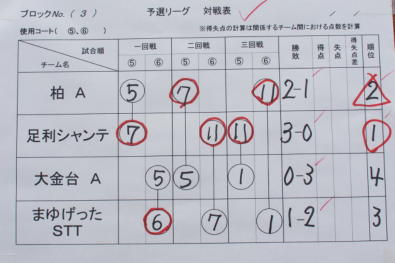 ブロックNo.( 3 ) 予選リーグ 対戦表
使用コート ( ⑤、⑥ ) ※得失点の計算は関係するチーム間における点数を計算
試合順 一回戦 二回戦 三回戦 勝敗 得点 失点 得失点差 順位
チーム名 ⑤ ⑥ ⑤ ⑥ ⑤ ⑥
柏 A 5 7 11 2-1 2
足利シャンテ 7 11 11 3-0 1
大金台 A 5 5 1 0-3 4
まゆげった 6 7 1 1-2 3
STT